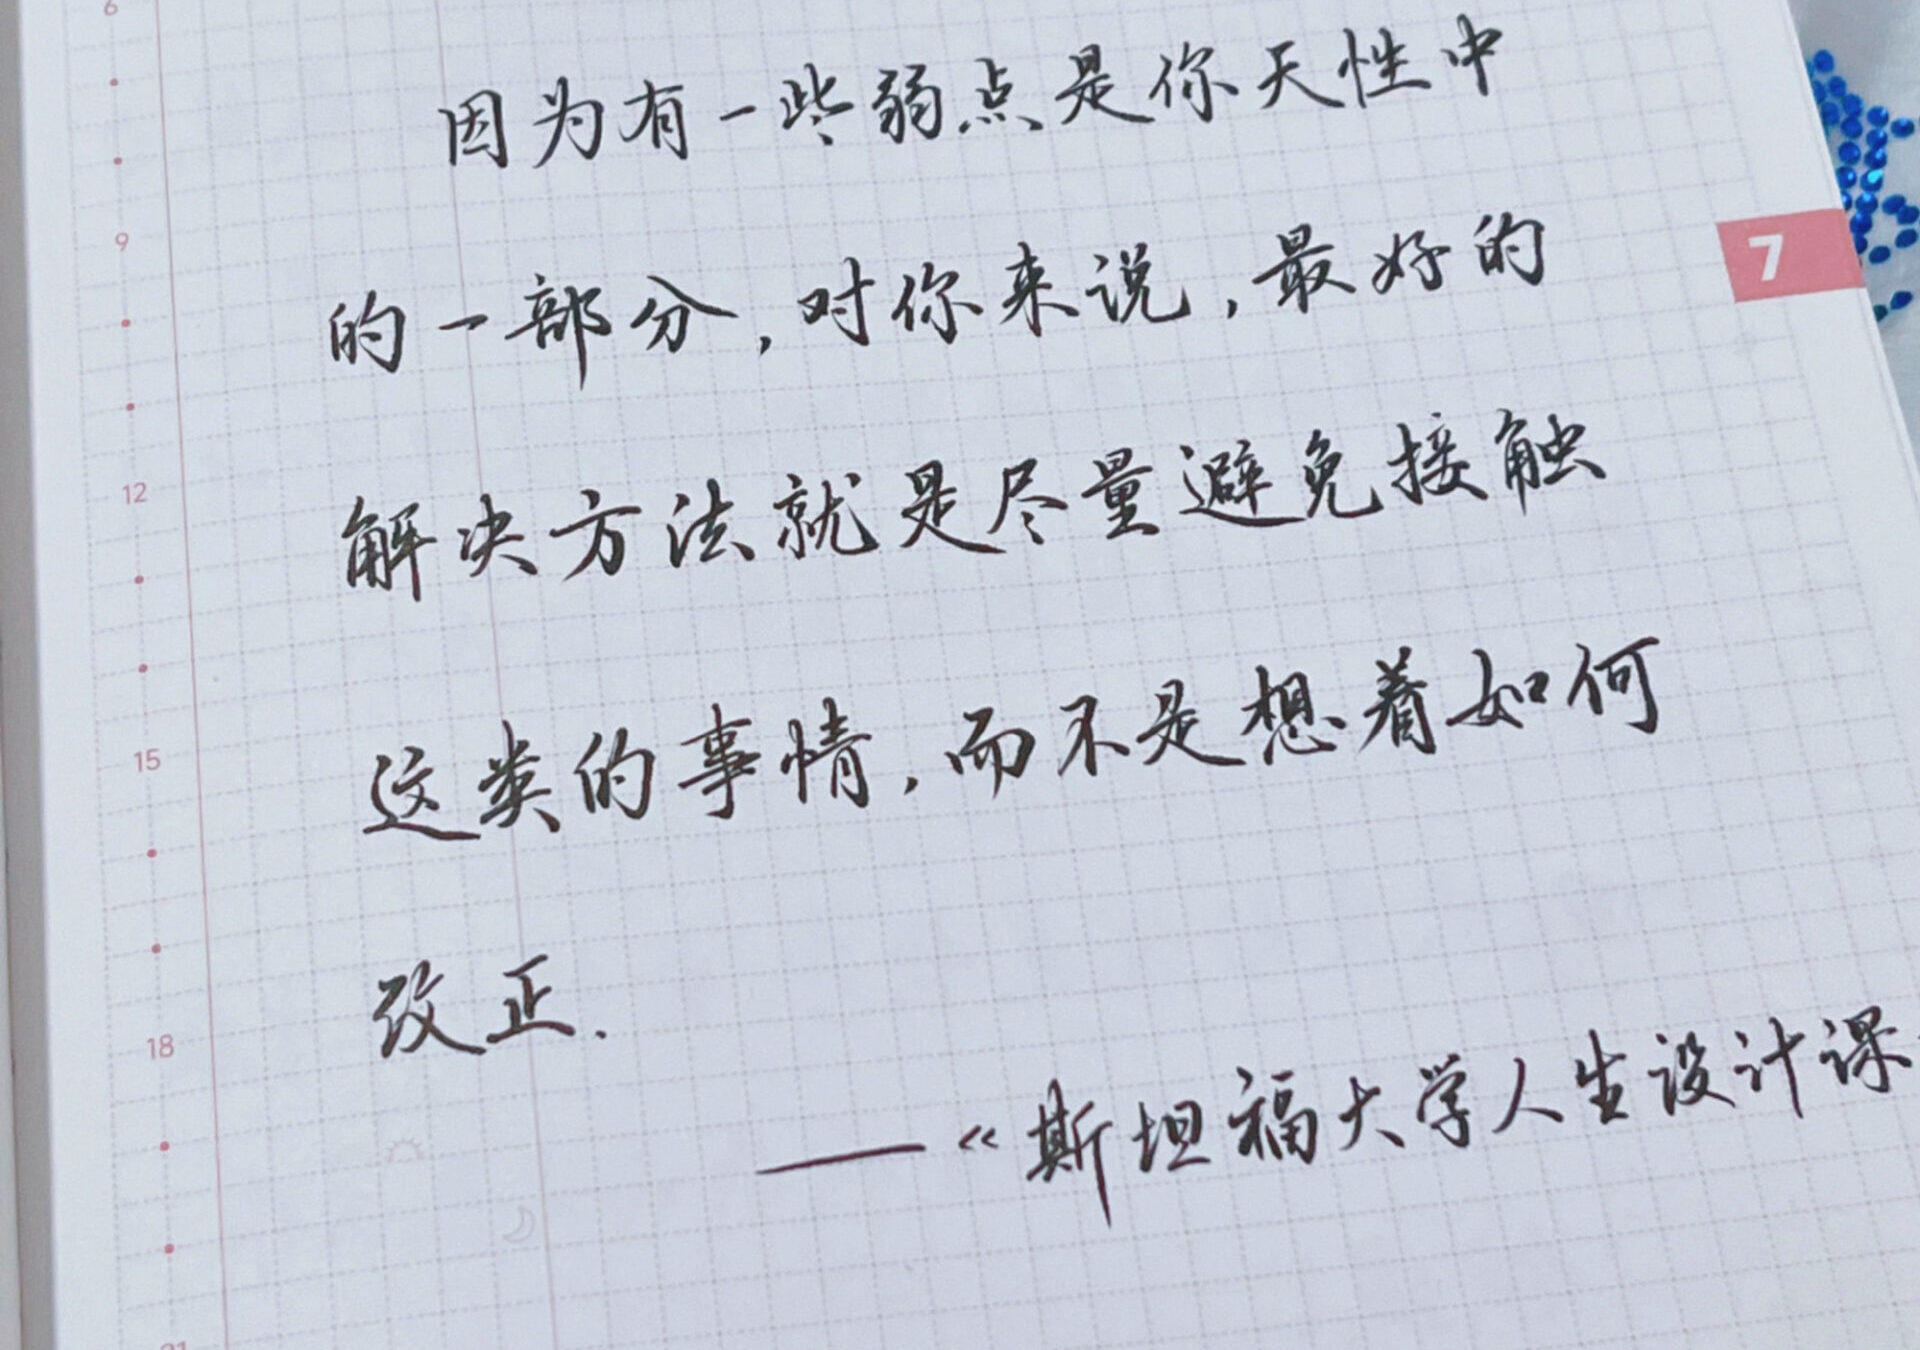 6
因为有一些弱点是你天性中
9
的一部分,对你来说,最好的
7
12
解决方法就是尽量避免接触
15
这类的事情,而不是想着如何
18
改正.
——《斯坦福大学人生设计课
21